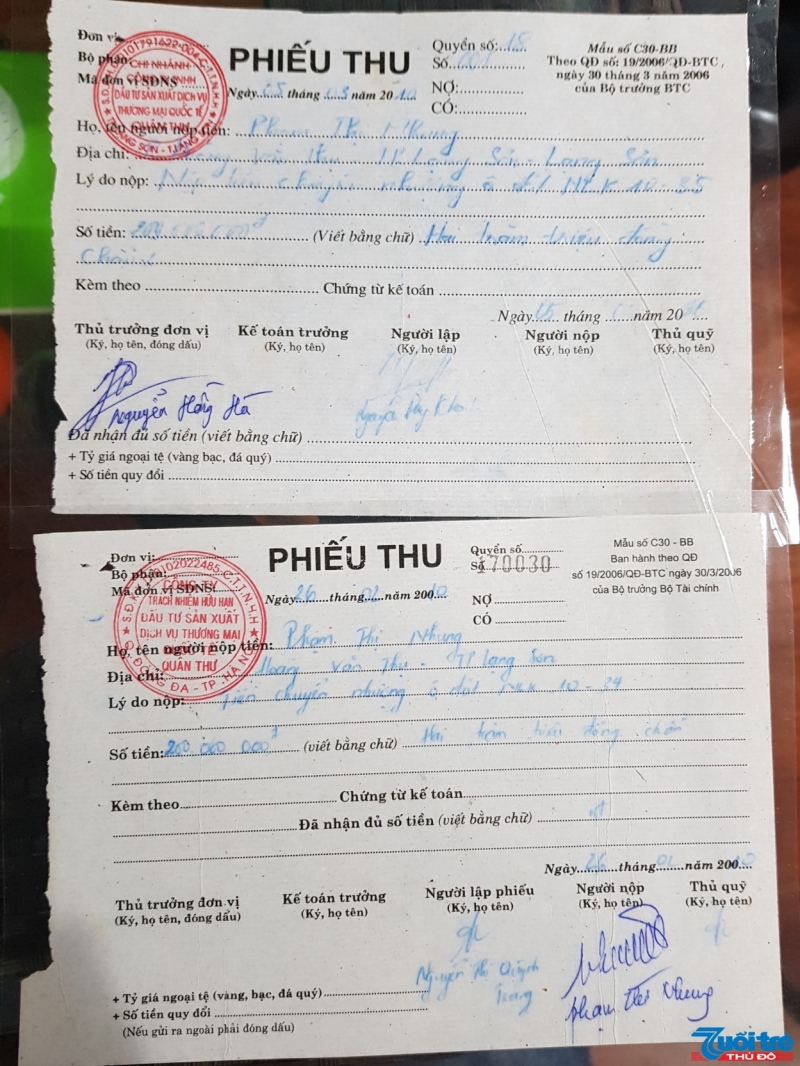 Đơn vị
Bộ phận:
Mã đơn vị SDNS
PHIẾU THU
Ngày 05 tháng 05 năm 2010
Quyển số: 18
Số
NỢ:
CÓ:
Mẫu số C30-BB
Theo QĐ số: 19/2006/QĐ-BTC,
ngày 30 tháng 3 năm 2006
của Bộ trưởng BTC
CHI NHÁNH
ĐẦU TƯ SẢN XUẤT DỊCH VỤ
THƯƠNG MẠI QUỐC TẾ
QUÂN THƯ
Họ, tên người nộp tiền: Phạm Thị Nhung
Địa chỉ: Hoàng Văn Thụ TP Lạng Sơn - Lạng Sơn
Lý do nộp: Nộp tiền chuyển nhượng ô đất
Số tiền: 200.000.000đ (Viết bằng chữ) Hai trăm triệu đồng
chẵn
Kèm theo Chứng từ kế toán
Ngày 05 tháng năm 20
Thủ trưởng đơn vị Kế toán trưởng Người lập Người nộp Thủ quỹ
(Ký, họ tên, đóng dấu) (Ký, họ tên) (Ký, họ tên) (Ký, họ tên) (Ký, họ tên)
Nguyễn Hồng Hà
Đã nhận đủ số tiền (viết bằng chữ)
+ Tỷ giá ngoại tệ (vàng bạc, đá quý)
+ Số tiền quy đổi
Đơn vị:
Bộ phận:
Mã đơn vị SDNS:
PHIẾU THU
Ngày 26 tháng 01 năm 20010
Quyển số
Số 170030
NỢ
CÓ
Mẫu số C30 - BB
Ban hành theo QĐ
số 19/2006/QĐ-BTC ngày 30/3/2006
của Bộ trưởng Bộ Tài chính
S.Đ.K 0102022485-C.T.T.N.H.H
CÔNG TY
TRÁCH NHIỆM HỮU HẠN
ĐẦU TƯ SẢN XUẤT
DỊCH VỤ THƯƠNG MẠI
QUỐC TẾ
QUÂN THƯ
Q. ĐỐNG ĐA - TP. HÀ NỘI
Họ, tên người nộp tiền: Phạm Thị Nhung
Địa chỉ: Hoàng Văn Thụ - TP Lạng Sơn
Lý do nộp: Tiền chuyển nhượng ô đất NLK 10 - 34
Số tiền: 200 000 000đ (viết bằng chữ) Hai trăm triệu đồng chẵn
Kèm theo Chứng từ kế toán
Đã nhận đủ số tiền (viết bằng chữ)
Ngày 26 tháng 01 năm 20010
Thủ trưởng đơn vị Kế toán trưởng Người lập phiếu Người nộp Thủ quỹ
(Ký, họ tên, đóng dấu) (Ký, họ tên) (Ký, họ tên) (Ký, họ tên) (Ký, họ tên)
Nguyễn Thị Quỳnh
Trang
Phạm Thị Nhung
+ Tỷ giá ngoại tệ (vàng, bạc, đá quý)
+ Số tiền quy đổi
(Nếu gửi ra ngoài phải đóng dấu)
Tuổi trẻ
THỦ ĐÔ